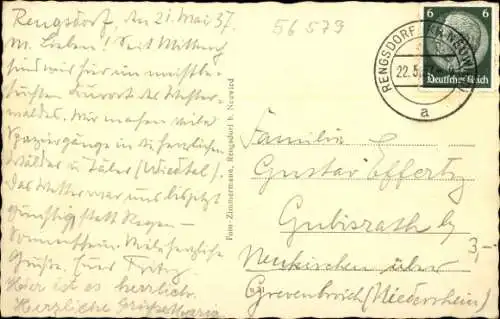 Rengsdorf, den 21. Mai 37.
M. Lieben! Seit Mittwoch
sind wir hier im meistbe-
suchten Kurort des Wester-
waldes. Wir machen viele
Spaziergänge in die herrlichen
Wälder u. Täler (Wiedtal).
Das Wetter war uns bis jetzt
günstig statt Regen –
Sonnenschein. Viele herzliche
Grüße. Euer Fritz.
Hier ist es herrlich.
Herzliche Grüße Maria
Foto-Zimmermann, Rengsdorf b. Neuwied
56579
RENGSDORF (KR. NEUWIED)
22.5.37
a
6 6
Deutsches Reich
Familie
Gustav Effertz
Gubisrath by
Neukirchen über
Grevenbroich (Niederrhein)
3,-